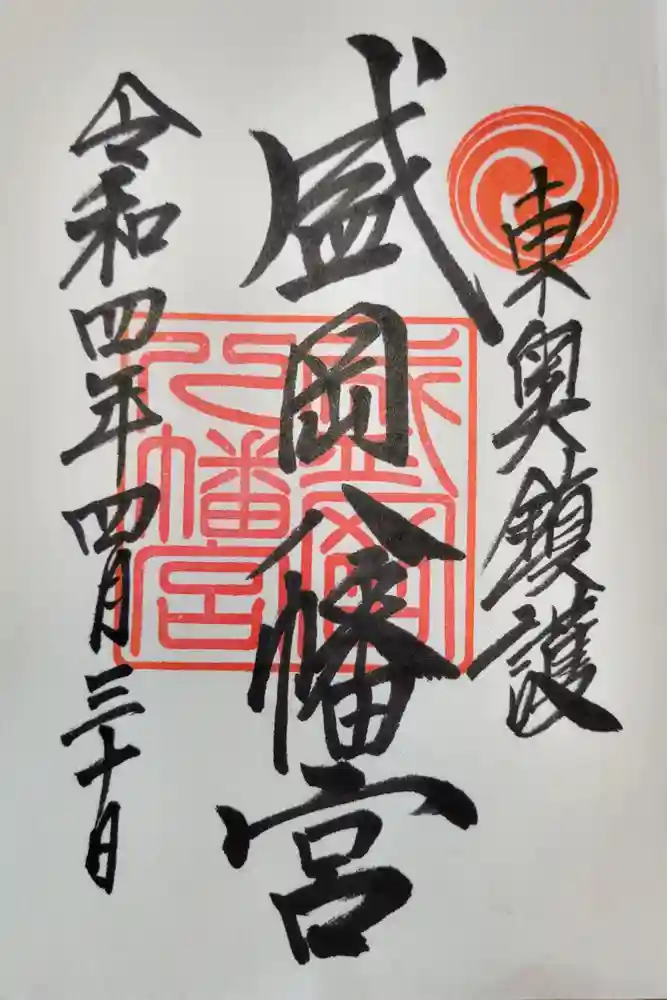 東奥鎮護
盛岡八幡宮
盛岡八幡宮
令和四年四月三十日